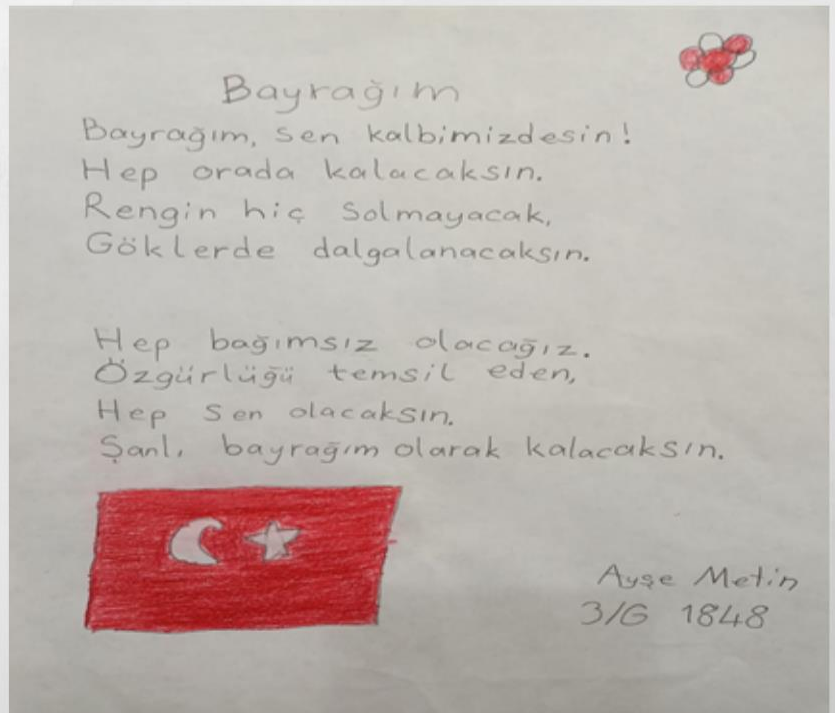 Bayrağım
Bayrağım, sen kalbimizdesin!
Hep orada kalacaksın.
Rengin hiç solmayacak,
Göklerde dalgalanacaksın.
Hep bağımsız olacağız.
Özgürlüğü temsil eden,
Hep sen olacaksın.
Şanlı bayrağım olarak kalacaksın.
Ayşe Metin
3/G 1848